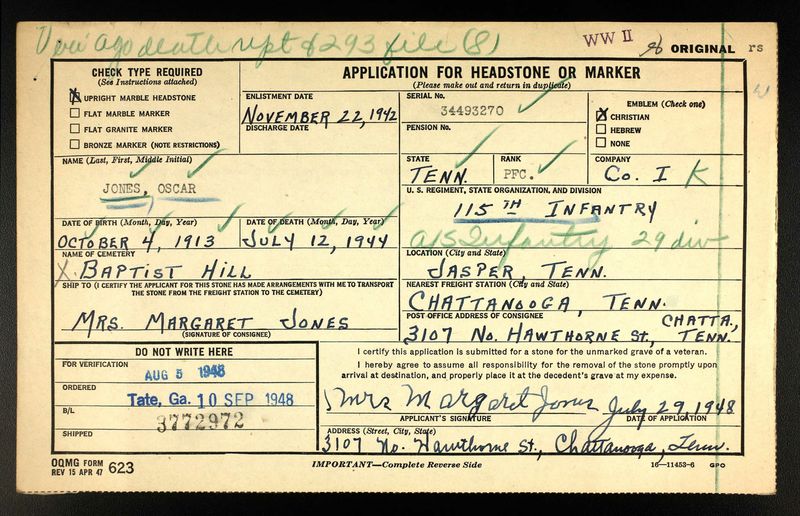 Veri ago death rept & 293 file (8)
WW II
ORIGINAL rs
CHECK TYPE REQUIRED
(See Instructions attached)
X UPRIGHT MARBLE HEADSTONE
FLAT MARBLE MARKER
FLAT GRANITE MARKER
BRONZE MARKER (NOTE RESTRICTIONS)
APPLICATION FOR HEADSTONE OR MARKER
(Please make out and return in duplicate)
ENLISTMENT DATE
NOVEMBER 22, 1942
DISCHARGE DATE
SERIAL No.
34493270
PENSION No.
EMBLEM (Check one)
X CHRISTIAN
HEBREW
NONE
NAME (Last, First, Middle Initial)
JONES, OSCAR
STATE
TENN.
RANK
PFC.
COMPANY
Co. I K
U. S. REGIMENT, STATE ORGANIZATION, AND DIVISION
115 TH INFANTRY
Infantry 29 div
DATE OF BIRTH (Month, Day, Year)
OCTOBER 4, 1913
DATE OF DEATH (Month, Day, Year)
JULY 12, 1944
NAME OF CEMETERY
X BAPTIST HILL
LOCATION (City and State)
JASPER, TENN.
SHIP TO (I CERTIFY THE APPLICANT FOR THIS STONE HAS MADE ARRANGEMENTS WITH ME TO TRANSPORT
THE STONE FROM THE FREIGHT STATION TO THE CEMETERY)
MRS. MARGARET JONES
(SIGNATURE OF CONSIGNEE)
NEAREST FREIGHT STATION (City and State)
CHATTANOOGA, TENN.
POST OFFICE ADDRESS OF CONSIGNEE
3107 NO. HAWTHORNE ST., CHATTA., TENN.
DO NOT WRITE HERE
FOR VERIFICATION
AUG 5 1948
ORDERED
Tate, Ga. 10 SEP 1948
B/L
3772972
SHIPPED
I certify this application is submitted for a stone for the unmarked grave of a veteran.
I hereby agree to assume all responsibility for the removal of the stone promptly upon
arrival at destination, and properly place it at the decedent's grave at my expense.
Mrs Margaret Jones July 29, 1948
APPLICANT'S SIGNATURE DATE OF APPLICATION
ADDRESS (Street, City, State)
3107 No. Hawthorne St., Chattanooga, Tenn.
OQMG FORM
REV 15 APR 47 623
IMPORTANT—Complete Reverse Side
16—11453-6 GPO